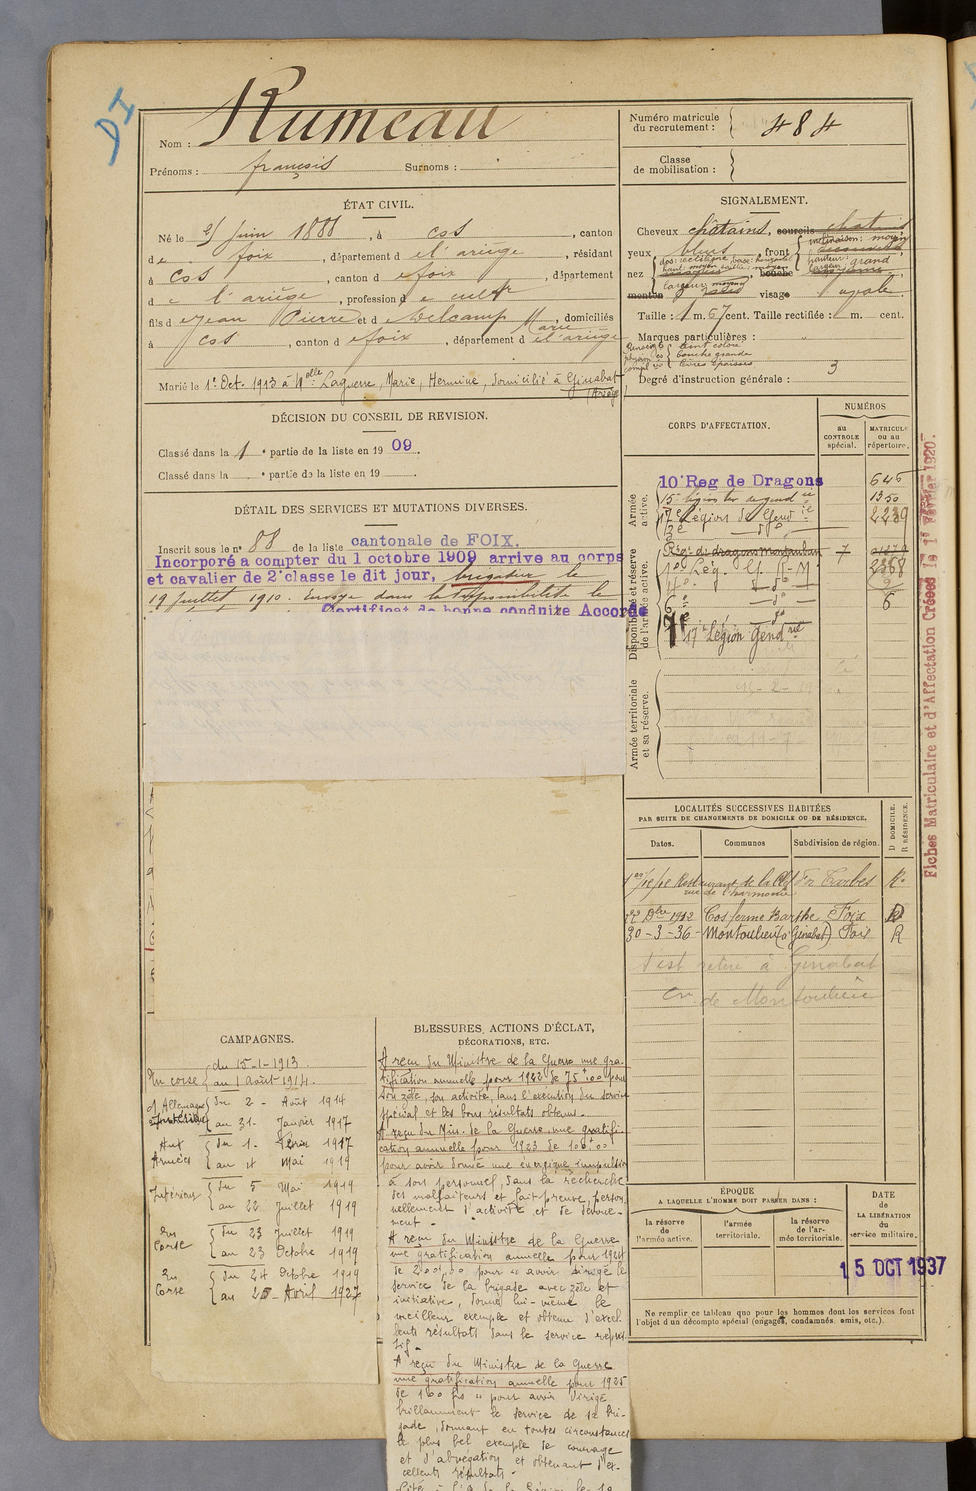 DI
Nom : Rumeau
Prénoms : françois Surnoms :
ÉTAT CIVIL.
Né le 25 Juin 1888, à Cos, canton
de foix, département d el ariège, résidant
à Cos, canton d e foix, département
d e l'ariège, profession d e cultr
fils d e Jean Pierre et d e Delcamp Marie, domiciliés
à Cos, canton d e foix, département d e l'ariège
Marié le 1er Oct. 1913 à Melle Laguerre, Marie, Hermine, domicilié à Ginabat
(Ariège
DÉCISION DU CONSEIL DE REVISION.
Classé dans la 1e partie de la liste en 1909
Classé dans la e partie de la liste en 19
DÉTAIL DES SERVICES ET MUTATIONS DIVERSES.
Inscrit sous le n° 88 de la liste cantonale de FOIX.
Incorporé a compter du 1 octobre 1909 arrive au corps
et cavalier de 2e classe le dit jour, brigadier le
19 Juillet 1910. Envoyé dans la disponibilité le
Certificat de bonne conduite Accordé
CAMPAGNES.
En corse { du 15-1-1913
au 1 Août 1914.
du 2 - Août 1914
au 31 - Janvier 1917
Aux Armées { du 1 - Février 1917
au 4 Mai 1919
Intérieur { du 5 Mai 1919
au 22 Juillet 1919
En Corse { du 23 Juillet 1919
au 23 Octobre 1919
En Corse { du 24 Octobre 1919
au 25 - Avril 1927
BLESSURES, ACTIONS D'ÉCLAT,
DÉCORATIONS, ETC.
A reçu du Ministre de la Guerre une gra-
tification annuelle pour 1922 de 75f00 pour
son zèle, son activité, dans l'exécution du service
spécial et les bons résultats obtenus.-
A reçu du Min. de la Guerre, une gratifi-
cation annuelle pour 1923 de 100f00
pour avoir donné une énergique impulsion
à son personnel, dans la recherche
des malfaiteurs et fait preuve, person-
nellement d'activité et de dévoue-
ment -
A reçu du Ministre de la Guerre
une gratification annuelle pour 1924
de 200f,00 pour "avoir dirigé le
service de la brigade avec zèle et
initiative, donné lui-même le
meilleur exemple et obtenu d'excel-
lents résultats dans le service répres-
sif -
A reçu du Ministre de la Guerre
une gratification annuelle pour 1925
de 100 frs "pour avoir dirigé
brillamment le service de sa bri-
gade, donnant en toutes circonstances
le plus bel exemple de courage
et d'abnégation et obtenant d'ex-
cellents résultats -
Numéro matricule
du recrutement : 484
Classe
de mobilisation :
SIGNALEMENT.
Cheveux châtains, sourcils chatains
yeux bleus, front { inclinaison: moyen
hauteur:
largeur: grand
nez { dos: rectiligne, base: horizontal
haut: moyen saillie: moyen
largeur: moyen
bouche
menton visage ovale.
Taille : 1 m. 67 cent. Taille rectifiée : m. cent.
Marques particulières :
Renseigts
physion.
compl. { teint coloré
bouche grande
lèvres épaisses
Degré d'instruction générale : 3
CORPS D'AFFECTATION.
NUMÉROS
au
CONTROLE
spécial.
MATRICULE
ou au
répertoire.
Armée
active.
10e Reg de Dragons 645
15e légion ter de gend ie 1350
17e Légion de Gend ie 2239
Disponibilité et réserve
de l'armée active.
Rég. de dragons Montauban 7
17e Légion Gend rie
6
Armée territoriale
et sa réserve.
LOCALITÉS SUCCESSIVES HABITÉES
PAR SUITE DE CHANGEMENTS DE DOMICILE OU DE RÉSIDENCE.
D DOMICILE.
R RÉSIDENCE.
Dates. Communes Subdivision de région.
Restaurant de la Tarbes R.
rue de l'harmonie
22 Dbre 1912 Cos ferme Barthe Foix D
30-3-36 - Montoulieu (à Ginabat) Foix R
S'est retiré à Ginabat
Cne de Montoulieu
ÉPOQUE
A LAQUELLE L'HOMME DOIT PASSER DANS :
la réserve
de
l'armée active.
l'armée
territoriale.
la réserve
de l'ar-
mée territoriale.
DATE
de
LA LIBÉRATION
du
service militaire.
15 OCT 1937
Ne remplir ce tableau que pour les hommes dont les services font
l'objet d'un décompte spécial (engagés, condamnés, omis, etc.).
Fiches Matriculaire et d'Affectation Créées le 1er Février 1920.